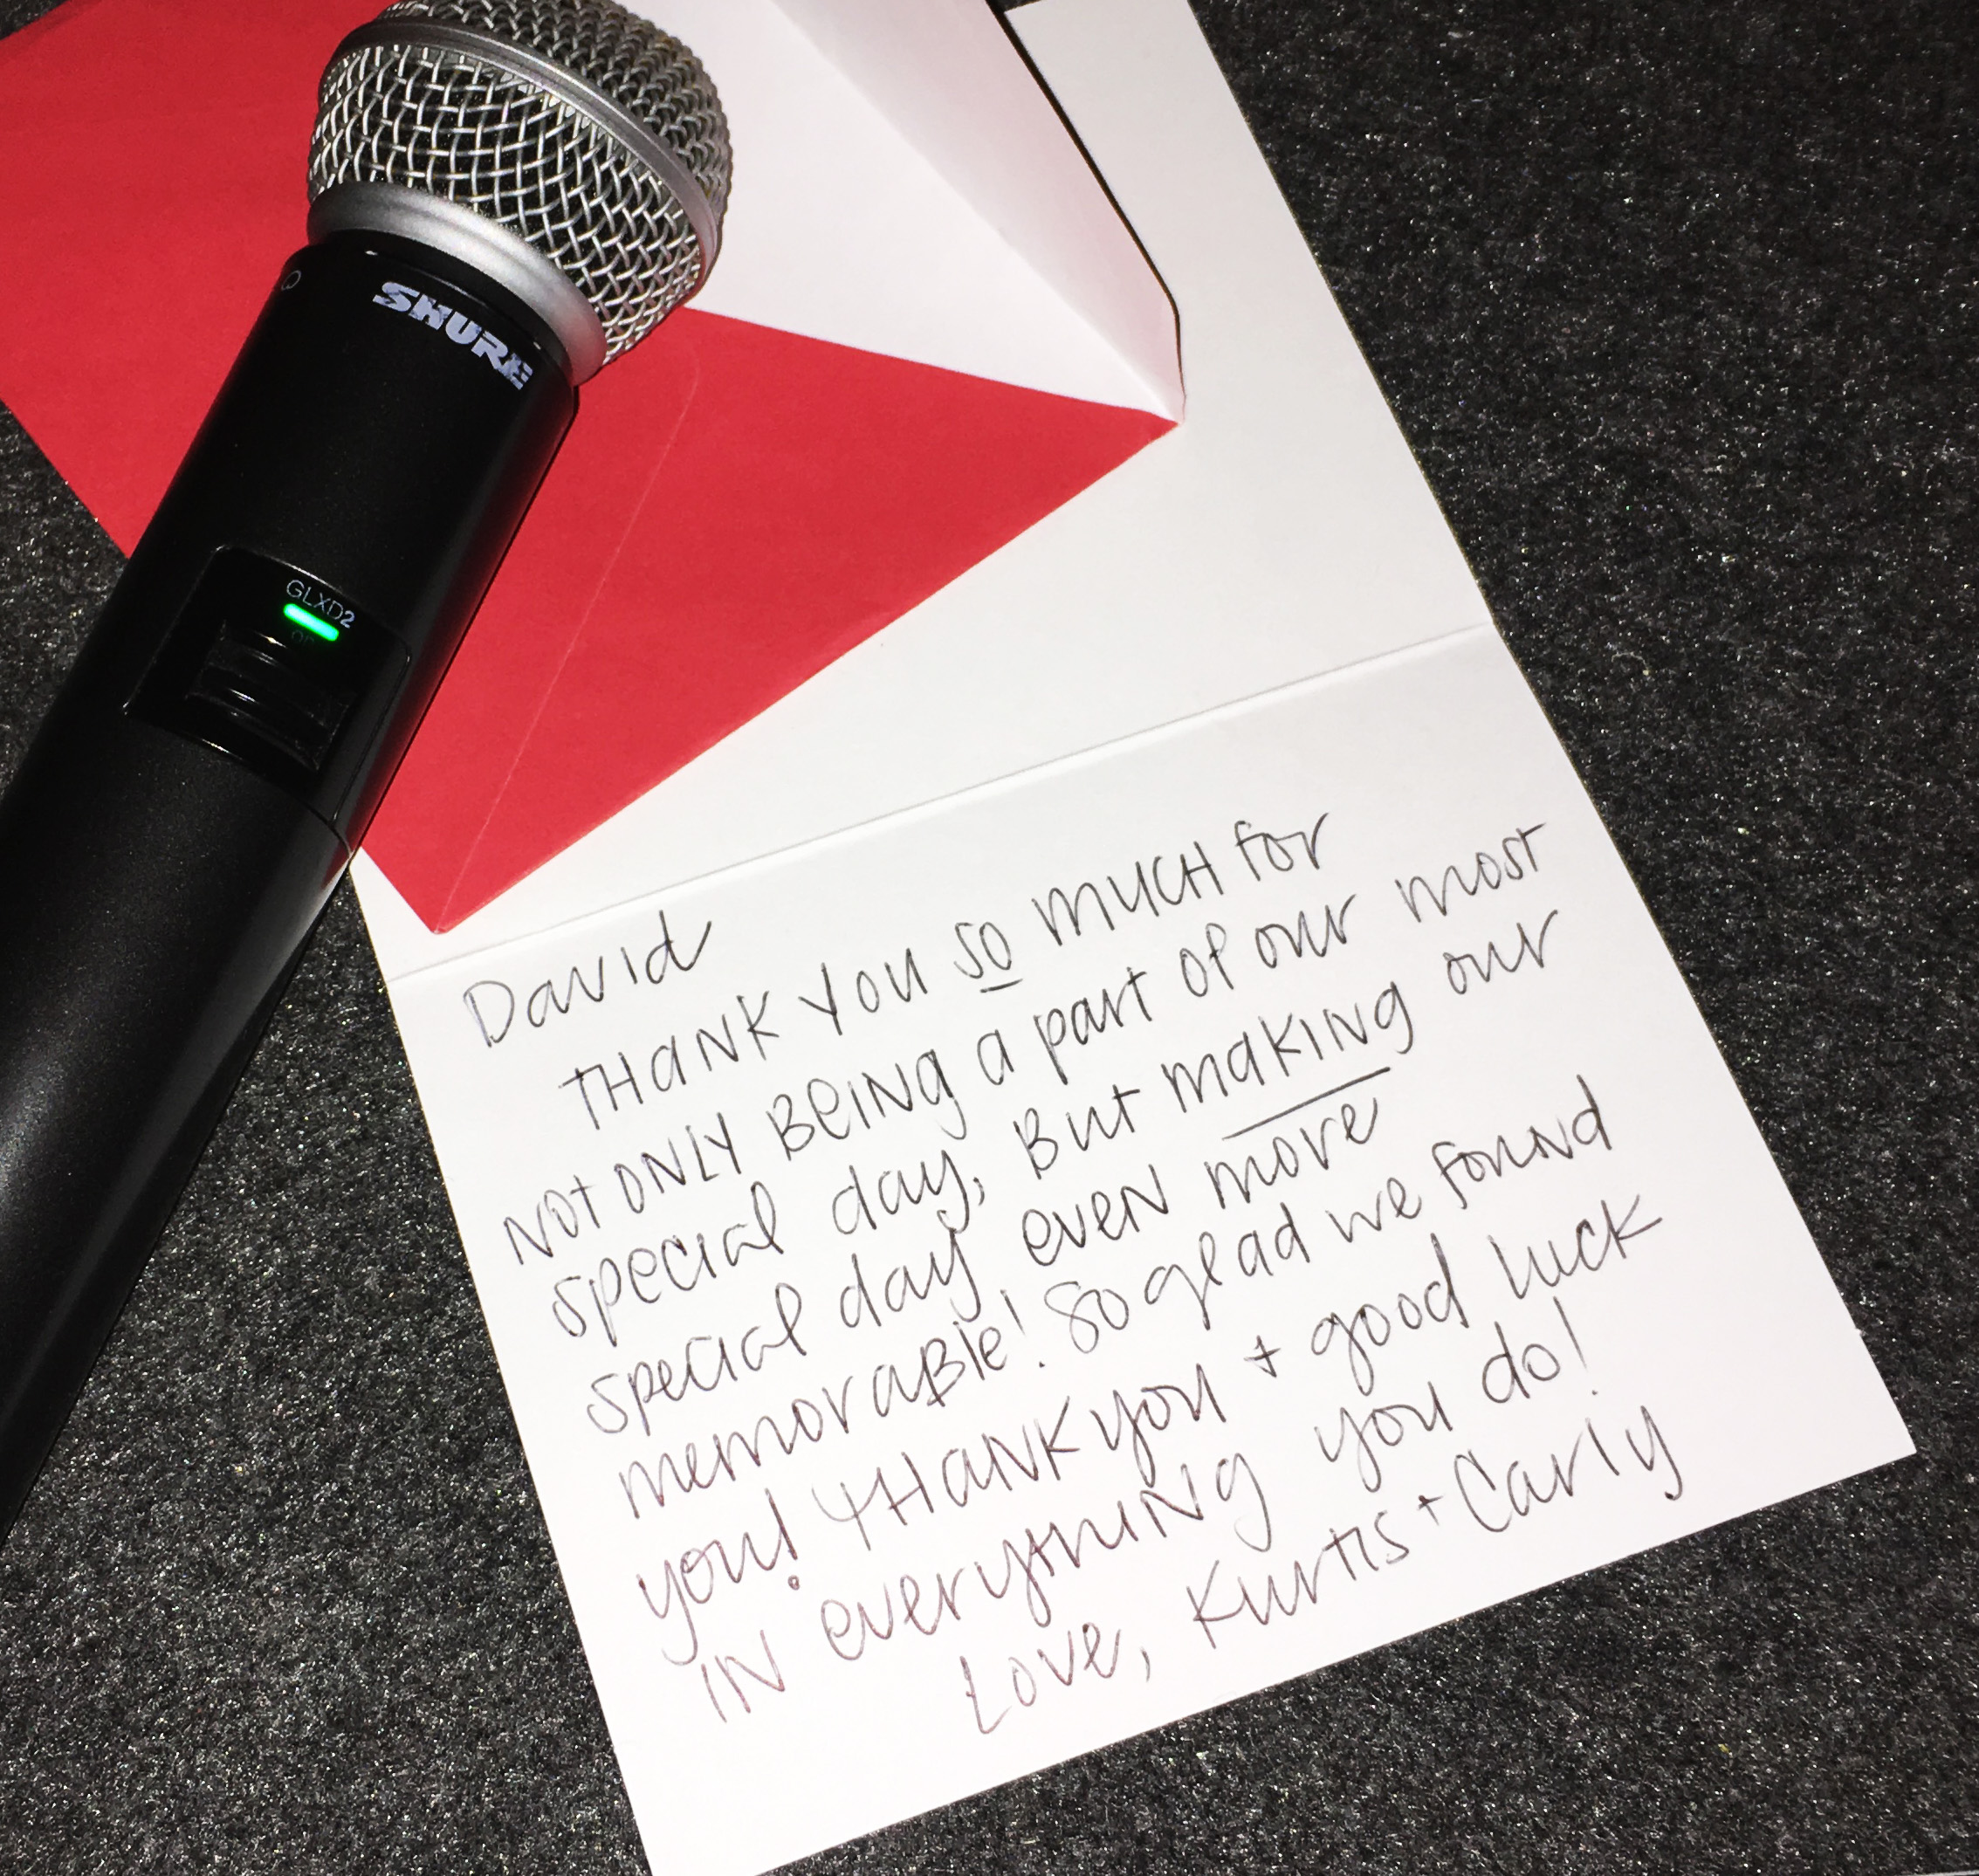 SHURE
GLXD2
David
THANK YOU SO MUCH for
NOT ONLY BEING a part of our most
special day, But making our
special day even more
memorable! So glad we found
you! THANK you + good luck
IN everything you do!
Love, Kurtis + Carly